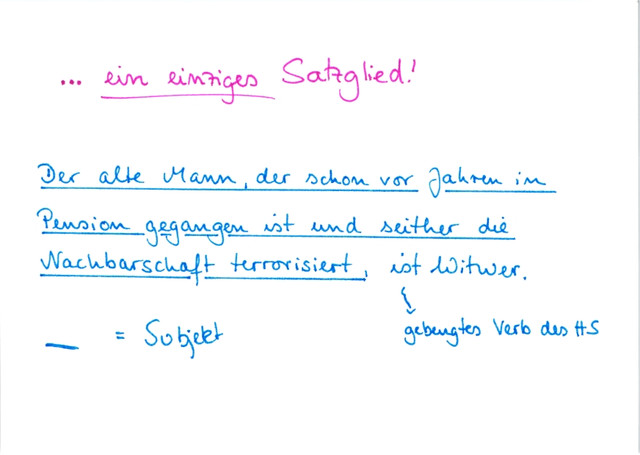 ... ein einziges Satzglied!
Der alte Mann, der schon vor Jahren in
Pension gegangen ist und seither die
Nachbarschaft terrorisiert, ist Witwer.
gebeugtes Verb des HS
__ = Subjekt